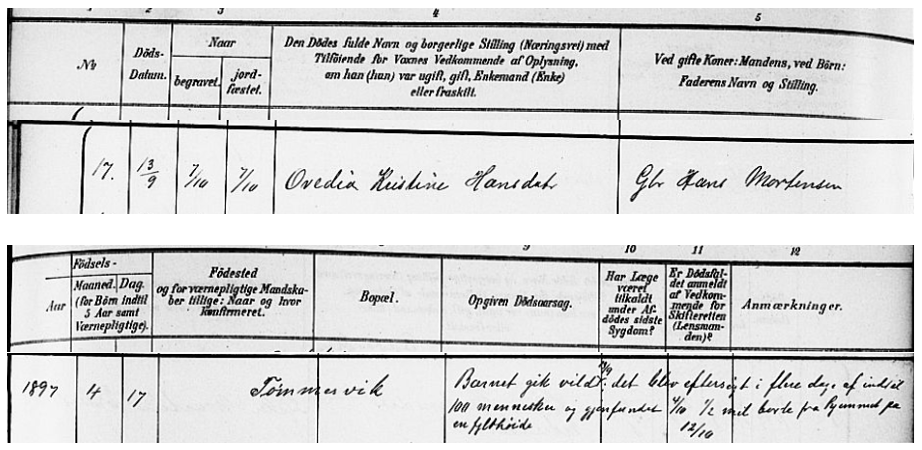 1 2 3 4 5
No
Döds-
Datum.
Naar
begravet.
jord-
fæstet.
Den Dödes fulde Navn og borgerlige Stilling (Næringsvei) med
Tilföiende for Voxnes Vedkommende af Oplysning,
om han (hun) var ugift, gift, Enkemand (Enke)
eller fraskilt.
Ved gifte Koner: Mandens, ved Börn:
Faderens Navn og Stilling.
17. 13/9 7/10 7/10 Ovedia Kristine Hansdatr Gbr Hans Mortensen
9 10 11 12
Födsels-
Aar
Maaned. Dag.
(for Börn indtil
5 Aar samt
Værnepligtige).
Födested
og for værnepligtige Mandska-
ber tillige: Naar og hvor
Konfirmeret.
Bopæl.
Opgiven Dödsaarsag.
Har Læge
været
tilkaldt
under Af-
dödes sidste
Sygdom?
Er Dödsfal-
det anmeldt
af Vedkom-
mende for
Skifteretten
(Lensman-
den)?
Anmærkninger.
1897 4 17 Tömmervik Barnet gik vildt det blev eftersögt i flere dage af indtil
100 mennesker og gjenfundet 7/10 1/2 mil borte fra Hjemmet paa
en fjeldhöide 12/10